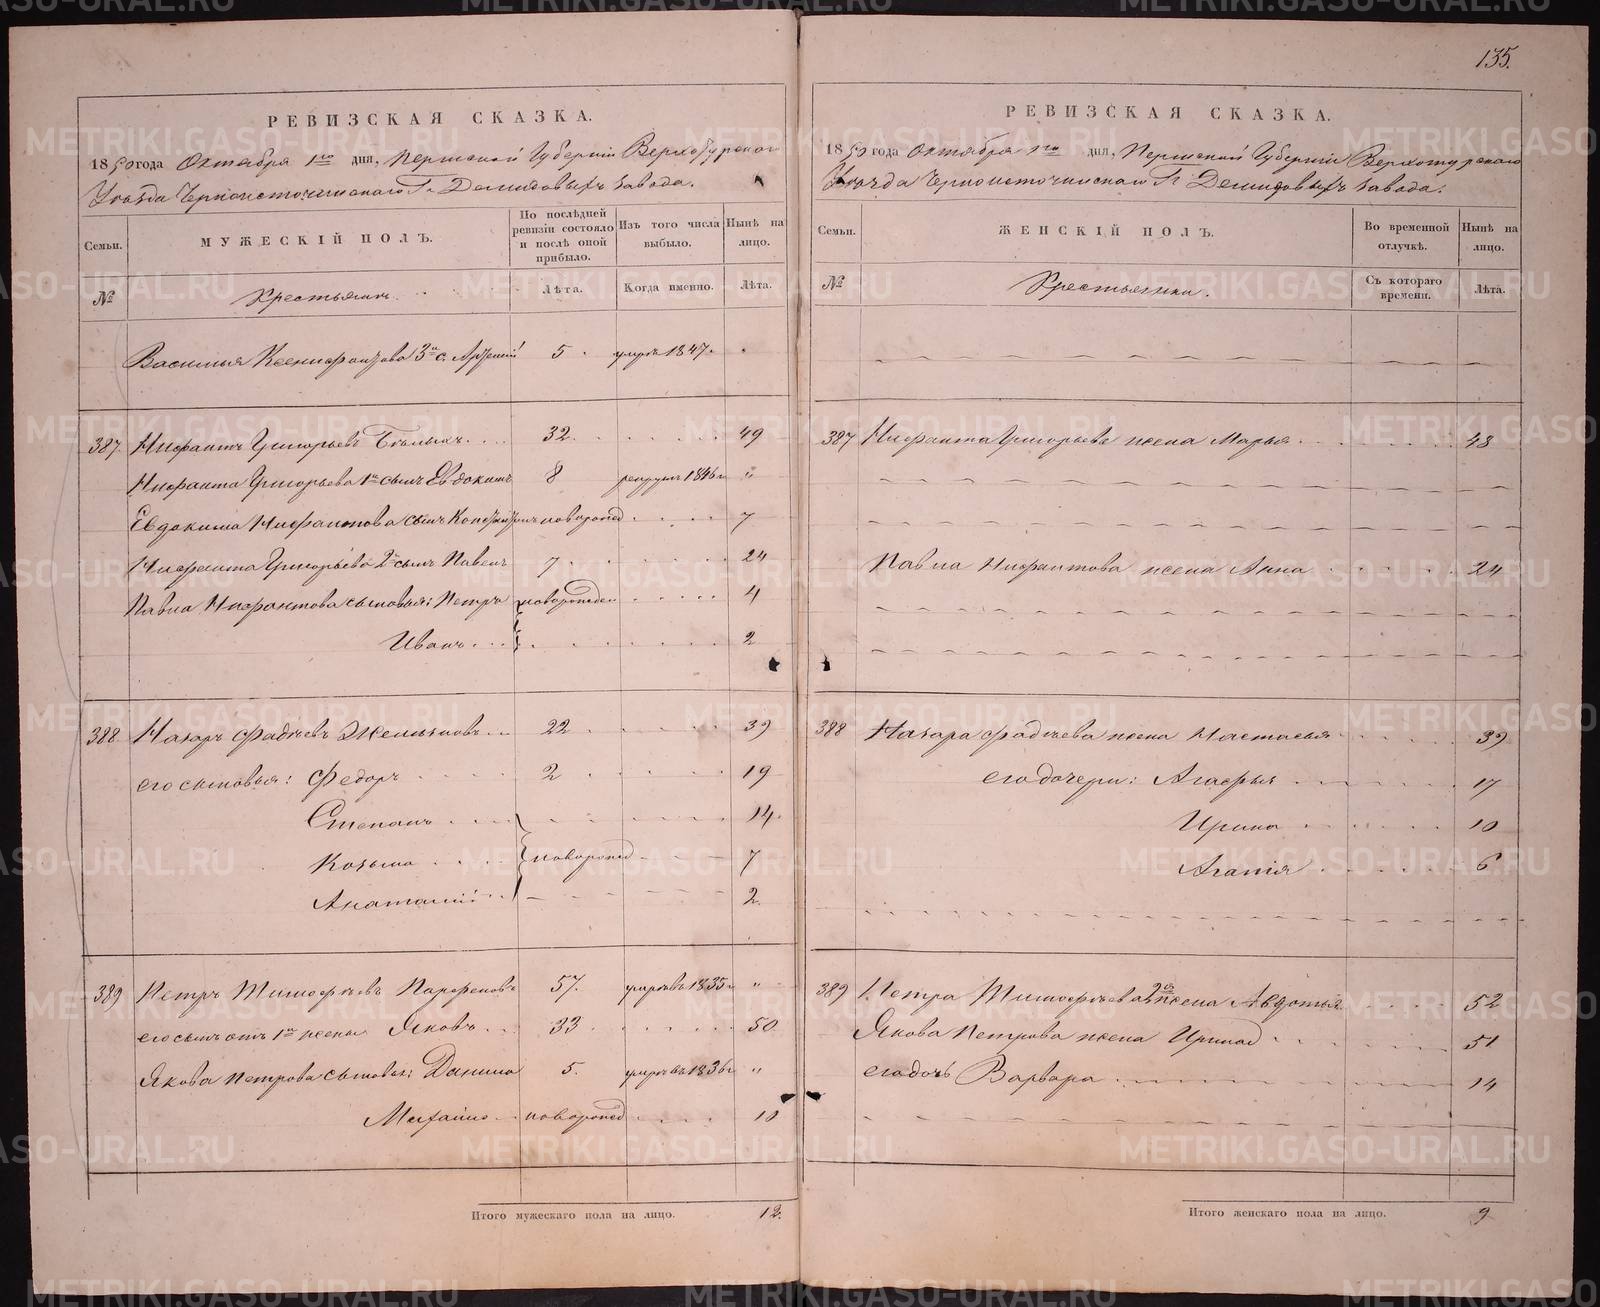 135.
РЕВИЗСКАЯ СКАЗКА.
1850 года Октября 1го дня, Пермской Губернии Верхотурскаго
Уѣзда Черноисточинскаго Гг Демидовыхъ завода.
Семьи.
МУЖЕСКІЙ ПОЛЪ.
По послѣдней ревизіи состояло и послѣ оной прибыло.
Изъ того числа выбыло.
Нынѣ на лицо.
№
Крестьянъ.
Лѣта.
Когда именно.
Лѣта.
Василья Ксенофонтова 3й с. Арсений 5 умеръ 1847.
387. Нифантъ Григорьевъ Бѣлыхъ 32 49
Нифанта Григорьева 1й сынъ Евдокимъ 8 рекрутъ 1846г "
Евдокима Нифантова сынъ новорожд 7
Нифанта Григорьева 2й сынъ Павелъ 7 24
Павла Нифантова сыновья: Петръ новорожден 4
Иванъ 2
388. Назаръ Фадѣевъ 22 39
его сыновья: Федоръ 2 19
Степанъ 14
Козьма новорожд 7
Анатолій 2
389 Петръ Тимофѣевъ Парфеновъ 57. умеръ въ 1835г "
его сынъ отъ 1й жены Яковъ 33 50
Якова Петрова сыновья: Данило 5. умеръ въ 1836г "
Михайло новорожд 10
Итого мужескаго пола на лицо. 12.
РЕВИЗСКАЯ СКАЗКА.
1850 года Октября 1го дня, Пермской Губерніи Верхотурскаго
Уѣзда Черноисточинскаго Гг Демидовыхъ завода.
Семьи.
ЖЕНСКІЙ ПОЛЪ.
Во временной отлучкѣ.
Нынѣ на лицо.
№
Крестьянки.
Съ котораго времени.
Лѣта.
387 Нифанта Григорьева жена Марья 48
Павла Нифантова жена Анна 24
388 Назара Фадѣева жена Настасья 39
его дочери: Агафья 17
Ирина 10
Агапія 6
389 Петра Тимофѣева 2я жена Авдотья 52
Якова Петрова жена Ирина 51
его дочь Варвара 14
Итого женскаго пола на лицо. 9
METRIKI.GASO-URAL.RU